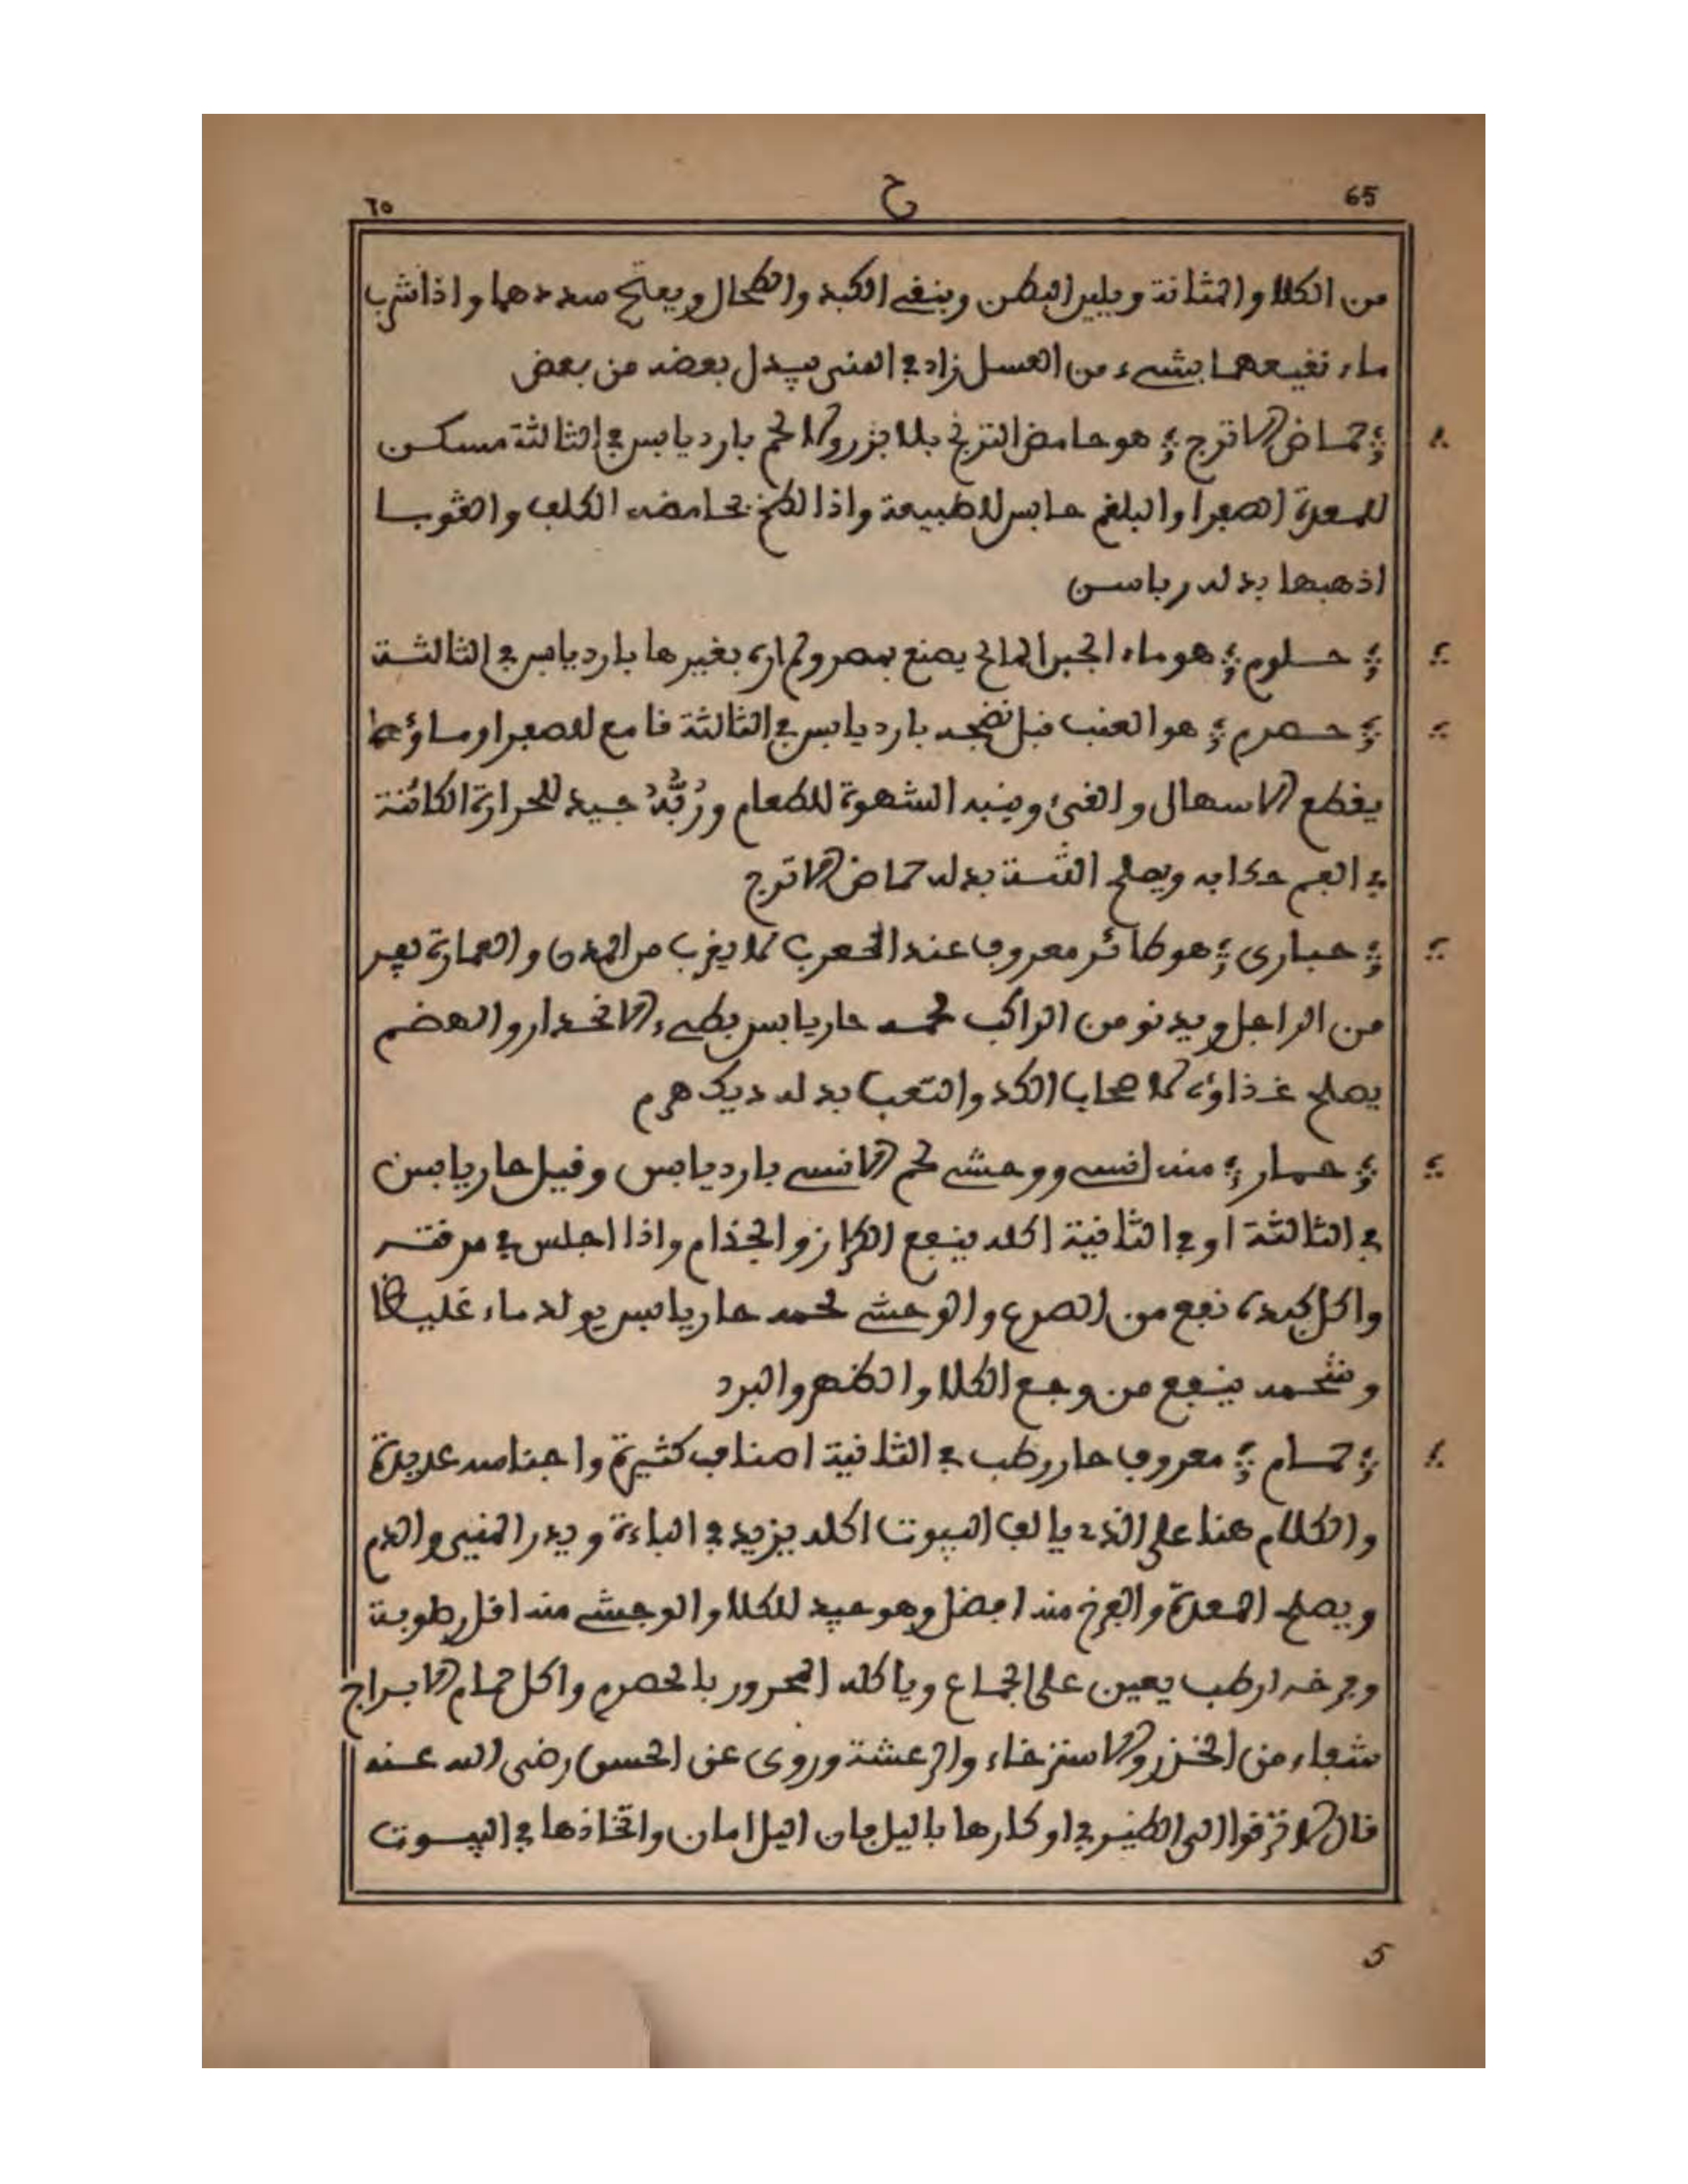 65 ح ٦٥
من الكلا والمثانة ويلين البطن وينفي الكبد والطحال ويفتح سددهما واذا شرب
ماء نفيعهما بشيء من العسل زاد في المني يبدل بعضه من بعض
حماض الاترج هو حامض الترنج بلا بزر ولا لحم بارد يابس في الثالثة مسكن
للمعدة الصفرا والبلغم حابس للطبيعة واذا لطخ بحامضه الكلف والقوبا
اذهبها بدله رباسن
حلوم هو ماء الجبن المالح يصنع بمصر ولم اره بغيرها بارد يابس في الثالثة
حصرم هو العنب قبل نضجه بارد يابس في الثالثة قامع للصفرا وماؤه
يقطع الاسهال والقيء وينبه الشهوة للطعام ورُبُّهُ جيد للحرارة الكائنة
في الفم ويصلح اللثة بدله حماض الاترج
حبارى هو طائر معروف عند العرب لا يقرب من المدن والعمارة يفر
من الراجل ويدنو من الراكب لحمه حار يابس بطيء الانحدار والهضم
يصلح غذاؤه لاصحاب الكد والتعب بدله ديك هرم
حمار منه انسي ووحشي لحم الانسي بارد يابس وقيل حار يابس
في الثالثة او في الثانية اكله ينفع الكزاز والجذام واذا اجلس في مرقته
واكل كبده نفع من الصرع والوحشي لحمه حار يابس يولد ماء غليظا
وشحمه ينفع من وجع الكلا والظهر والبرد
حمام معروف حار رطب في الثانية اصنافه كثيرة واجناسه عديدة
والكلام هنا على الذي يالف البيوت اكله يزيد في الباءة ويدر المني والدم
ويصلح المعدة والفرخ منه افضل وهو جيد للكلا والوحشي منه اقل رطوبة
وفرخه ارطب يعين على الجماع وياكله المحرور بالحصرم واكل حمام الابراج
شفاء من الخزر والاسترخاء والرعشة وروى عن الحسن رضي الله عنه
قال لا ترقوا الى الطير في اوكارها باليل فان اليل امان واتخاذها في البيوت
5